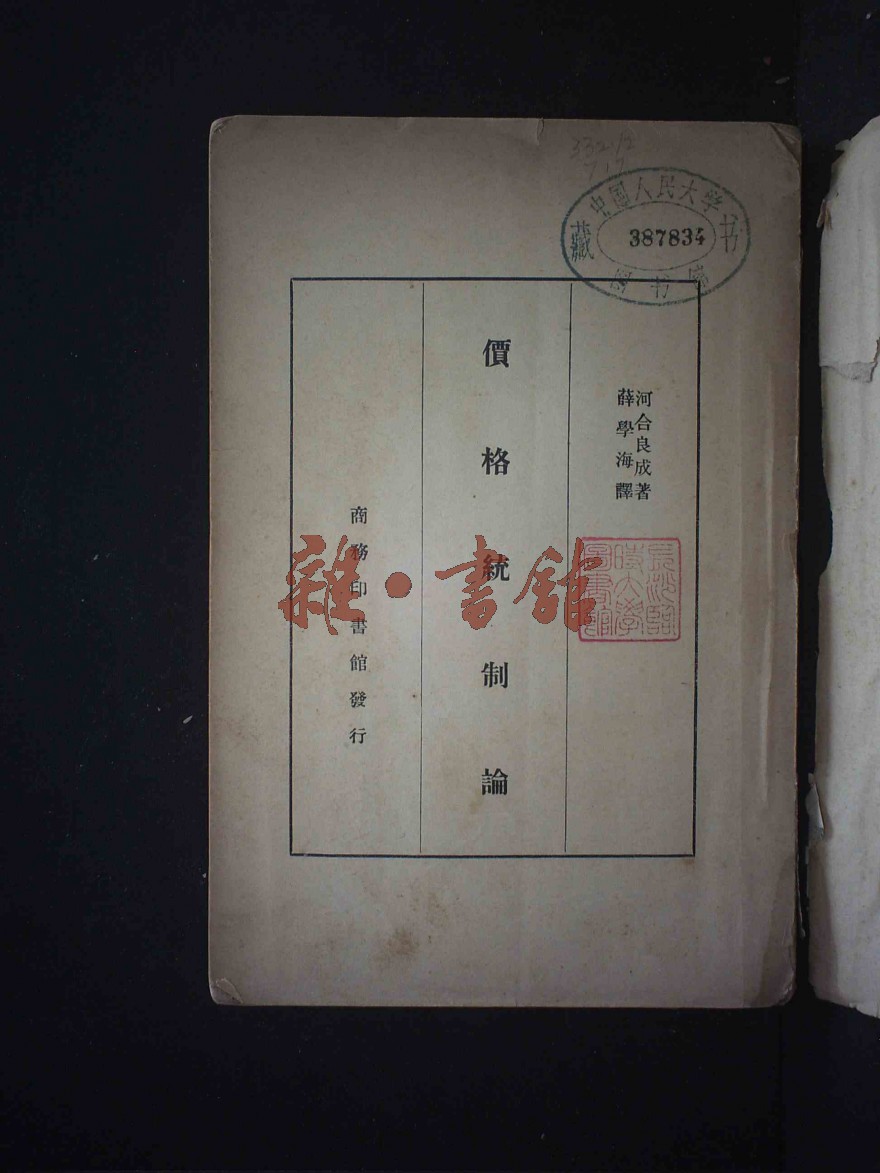 中国人民大学
藏
387834
书
图书馆
河合良成著
薛學海譯
價格統制論
商務印書館發行
雜·書館
長沙臨
時大學
圖書館